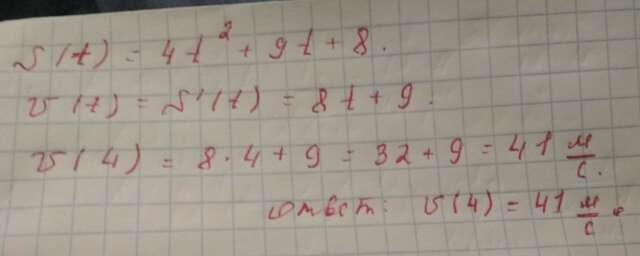 S(t) = 4t² + 9t + 8.
v(t) = S'(t) = 8t + 9.
v(4) = 8·4 + 9 = 32 + 9 = 41 м/с.
ответ: v(4) = 41 м/с.